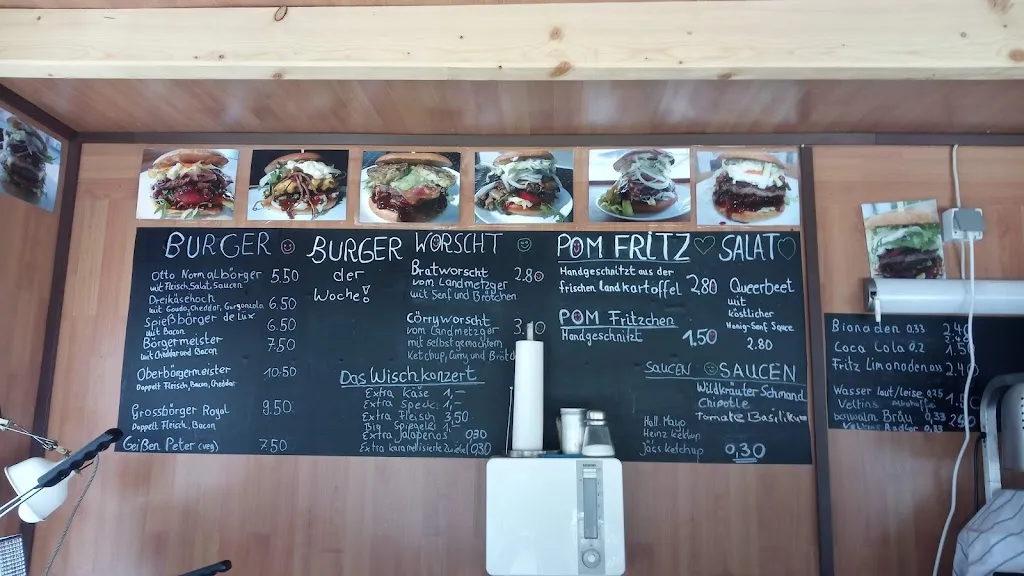 BURGER
Otto Normalbörger 5.50
mit Fleisch, Salat, Saucen
Dreikäsehoch 6.50
mit Gouda, Cheddar, Gorgonzola
Spießbörger de Lüx 6.50
mit Bacon
Börgermeister 7.50
mit Cheddar und Bacon
Oberbörgermeister 10.50
Doppelt Fleisch, Bacon, Cheddar
Grossbörger Royal 9.50
Doppelt Fleisch, Bacon
Geißen Peter (veg) 7.50
BURGER
der
Woche!
WORSCHT
Bratworscht 2.80
vom Landmetzger
mit Senf und Brötchen
Cörryworscht
vom Landmetzger
mit selbstgemachtem
Ketchup, Curry und
Das Wischkonzert
Extra Käse 1,-
Extra Speck 1,-
Extra Fleisch 3.50
Big Spiegelei 1,-
Extra Jalapenos 0,30
Extra karamellisierte Zwiebel 0,30
POM FRITZ
Handgeschnitzt aus der
frischen Landkartoffel 2,80
POM Fritzchen
Handgeschnitzt 1.50
SALAT
Queerbeet
mit
köstlicher
Honig-Senf Sauce
2.80
SAUCEN SAUCEN
Wildkräuter-Schmand
Chipotle
Tomate Basilikum
Holl. Mayo
Heinz Ketchup
Ketchup 0,30
Bionaden 0,33
Coca Cola 0,2
Fritz Limonaden
Wasser laut/leise 0,25
Veltins
Bräu 0,33
Veltins Radler 0,33